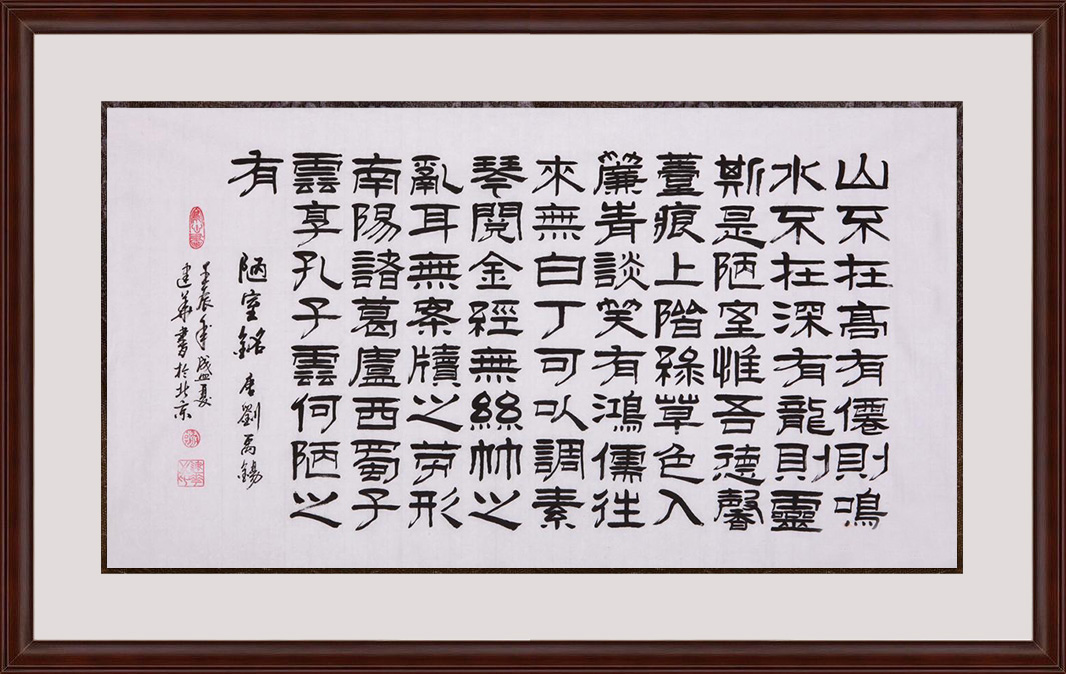 山不在髙有僊則鳴
水不在深有龍則靈
斯是陋室惟吾德馨
薹痕上階綠草色入
簾青談笑有鴻儒往
來無白丁可以調素
琴閱金經無絲竹之
亂耳無案牘之勞形
南陽諸葛廬西蜀子
雲享孔子雲何陋之
有
陋室銘 唐劉禹錫
壬辰年盛夏
建華書於北京